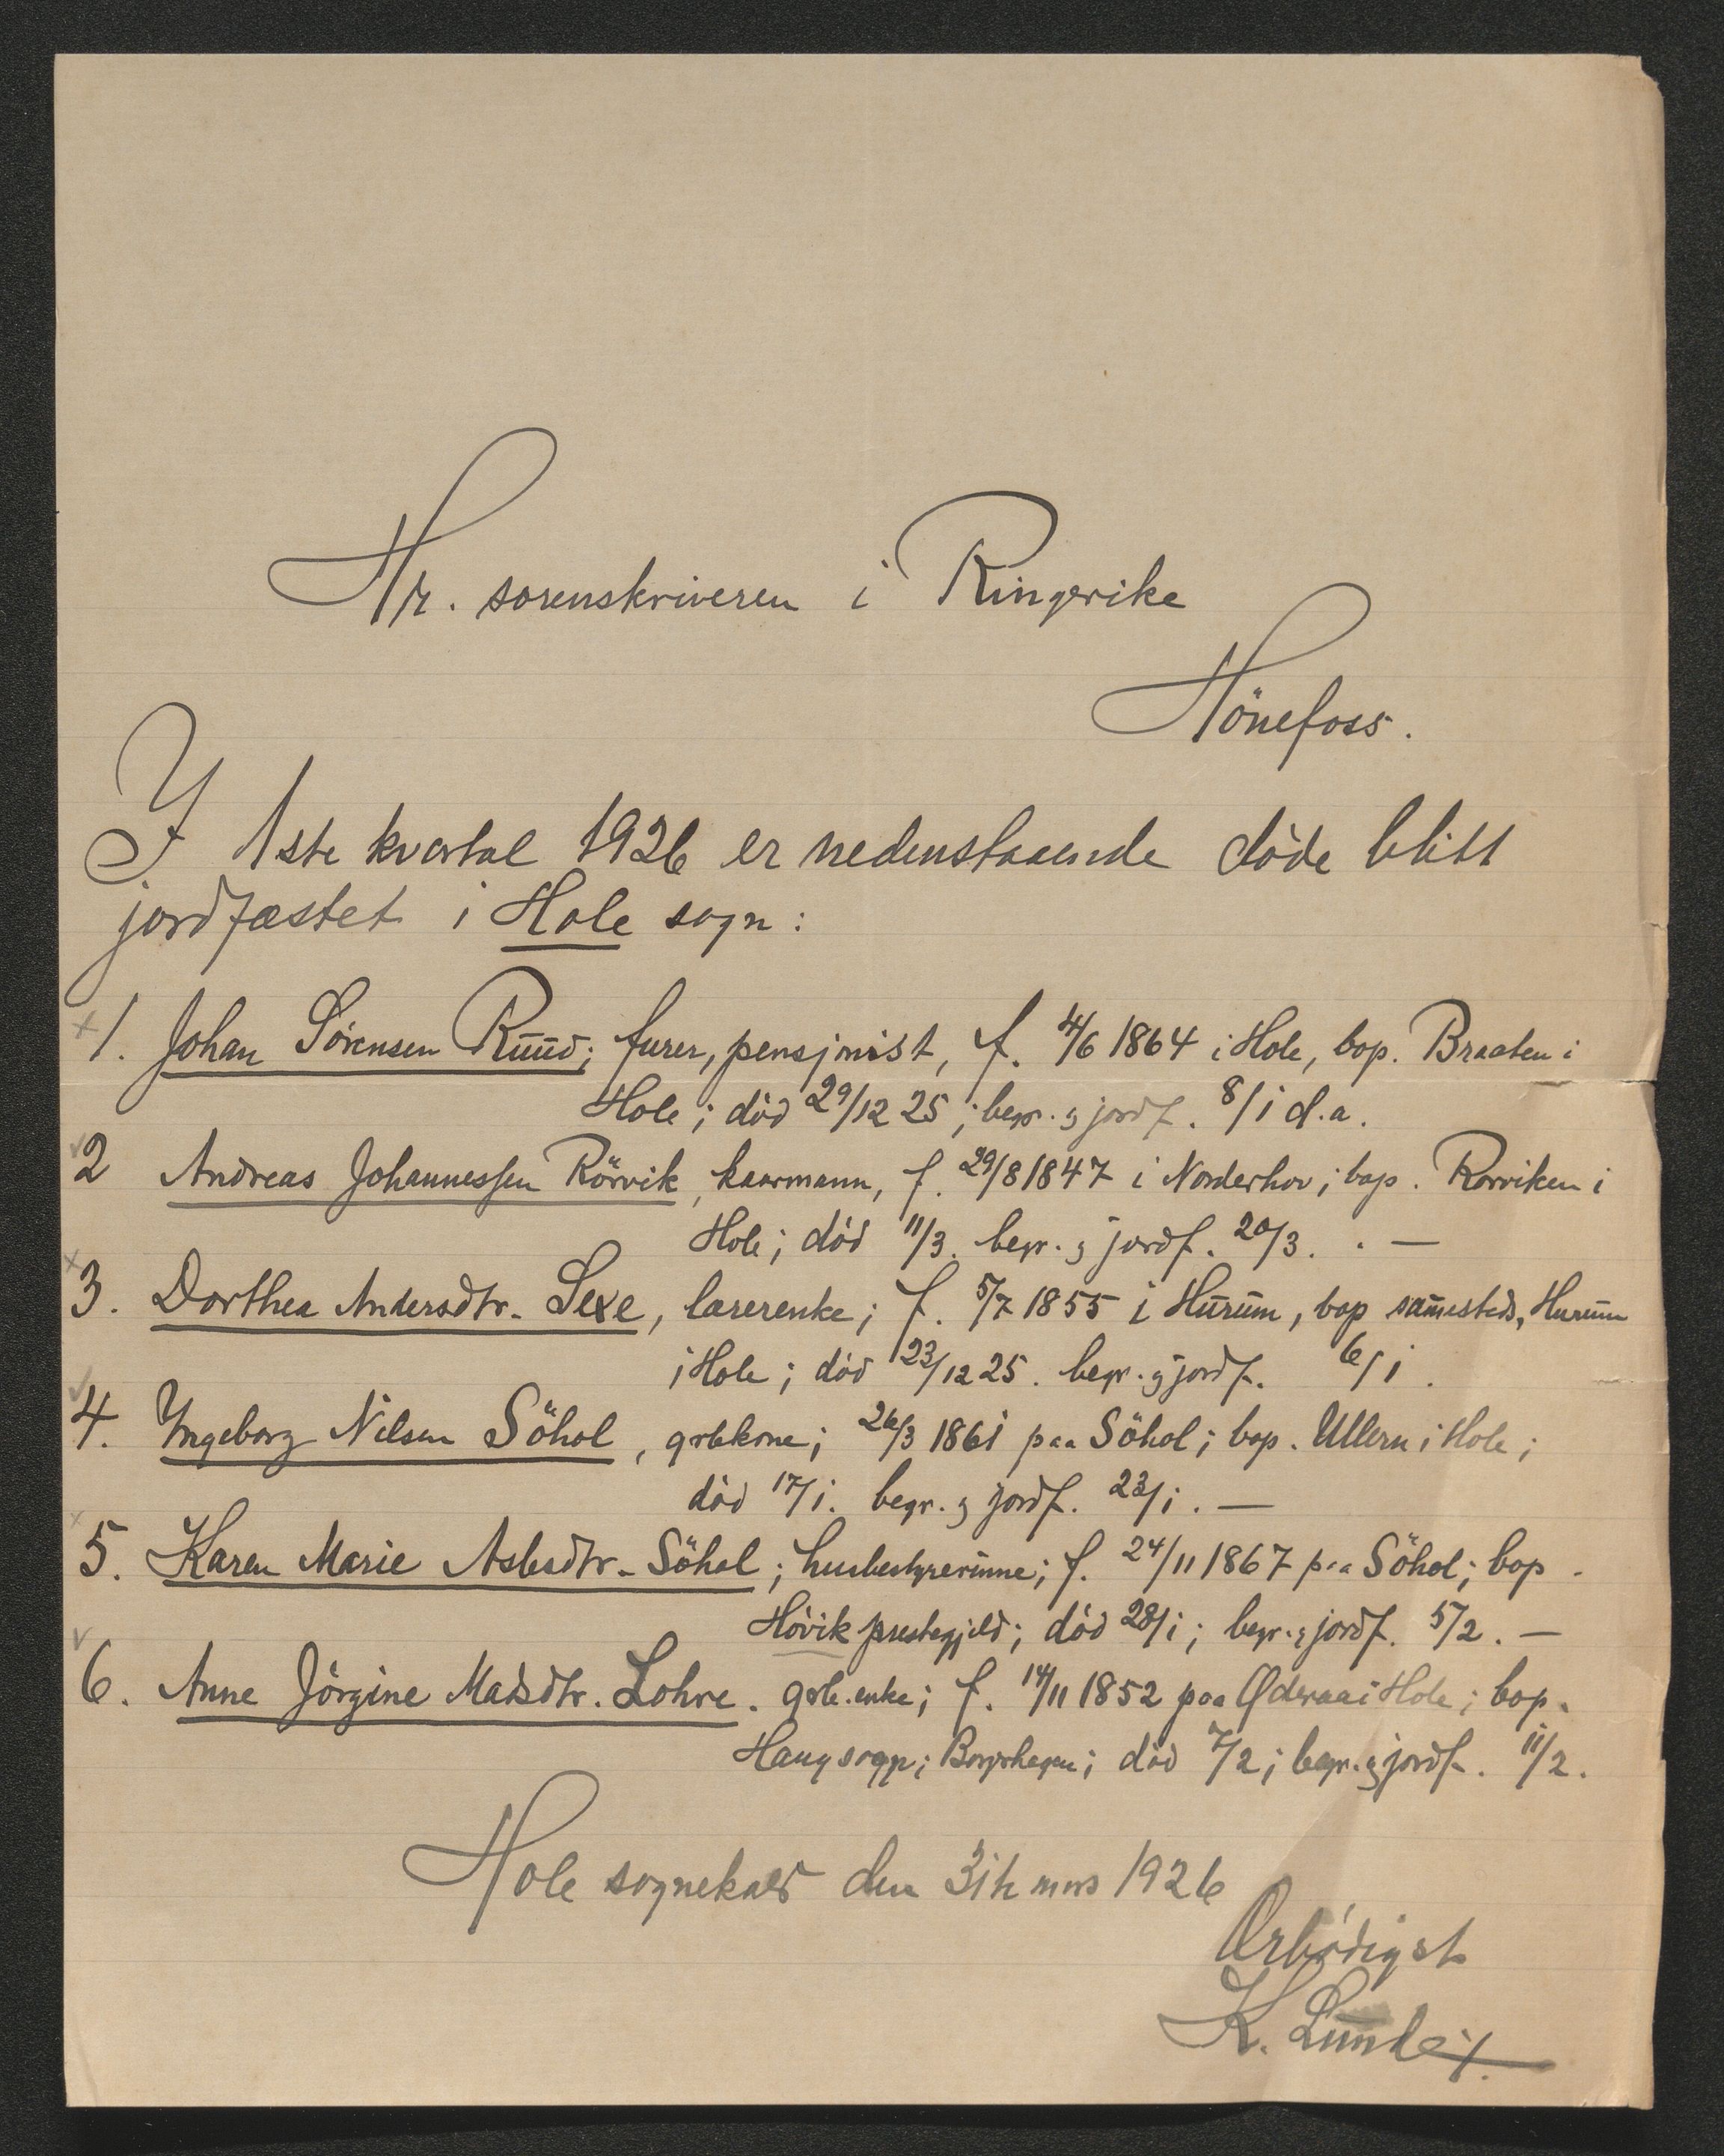 Hr. sorenskriveren i Ringerike
Hönefoss.
I 1ste kvartal 1926 er nedenstaaende döde blitt
jordfæstet i Hole sogn:
1. Johan Sörensen Ruud; furer, pensjonist, f. 4/6 1864 i Hole, bop. Braaten i
Hole; död 29/12 25; begr. og jordf. 8/1 d.a.
2 Andreas Johannessen Rörvik, kaarmann, f. 29/8 1847 i Norderhov; bop. Rörviken i
Hole; död 11/3. begr. og jordf. 20/3. . —
3. Dorthea Andersdtr. Sexe, lærerenke; f. 5/7 1855 i Hurum, bop sammesteds, Hurum
i Hole; död 23/12 25. begr. og jordf. 6/1.
4. Ingeborg Nilsen Söhol, grbkone; 26/3 1861 paa Söhol; bop. Ullern i Hole;
död 17/1. begr. og jordf. 23/1. —
5. Karen Marie Aslesdtr. Söhol; husbestyrerinne; f. 24/11 1867 paa Söhol; bop.
Hövik prestegjeld; död 28/1; begr. og jordf. 5/2. —
6. Anne Jörgine Madsdtr. Lohre. grb.enke; f. 14/11 1852 paa Öderaa i Hole; bop.
Haug sogn; död 7/2; begr. og jordf. 11/2.
Hole sognekald den 31te mars 1926
Ærbödigst
K. Lunde